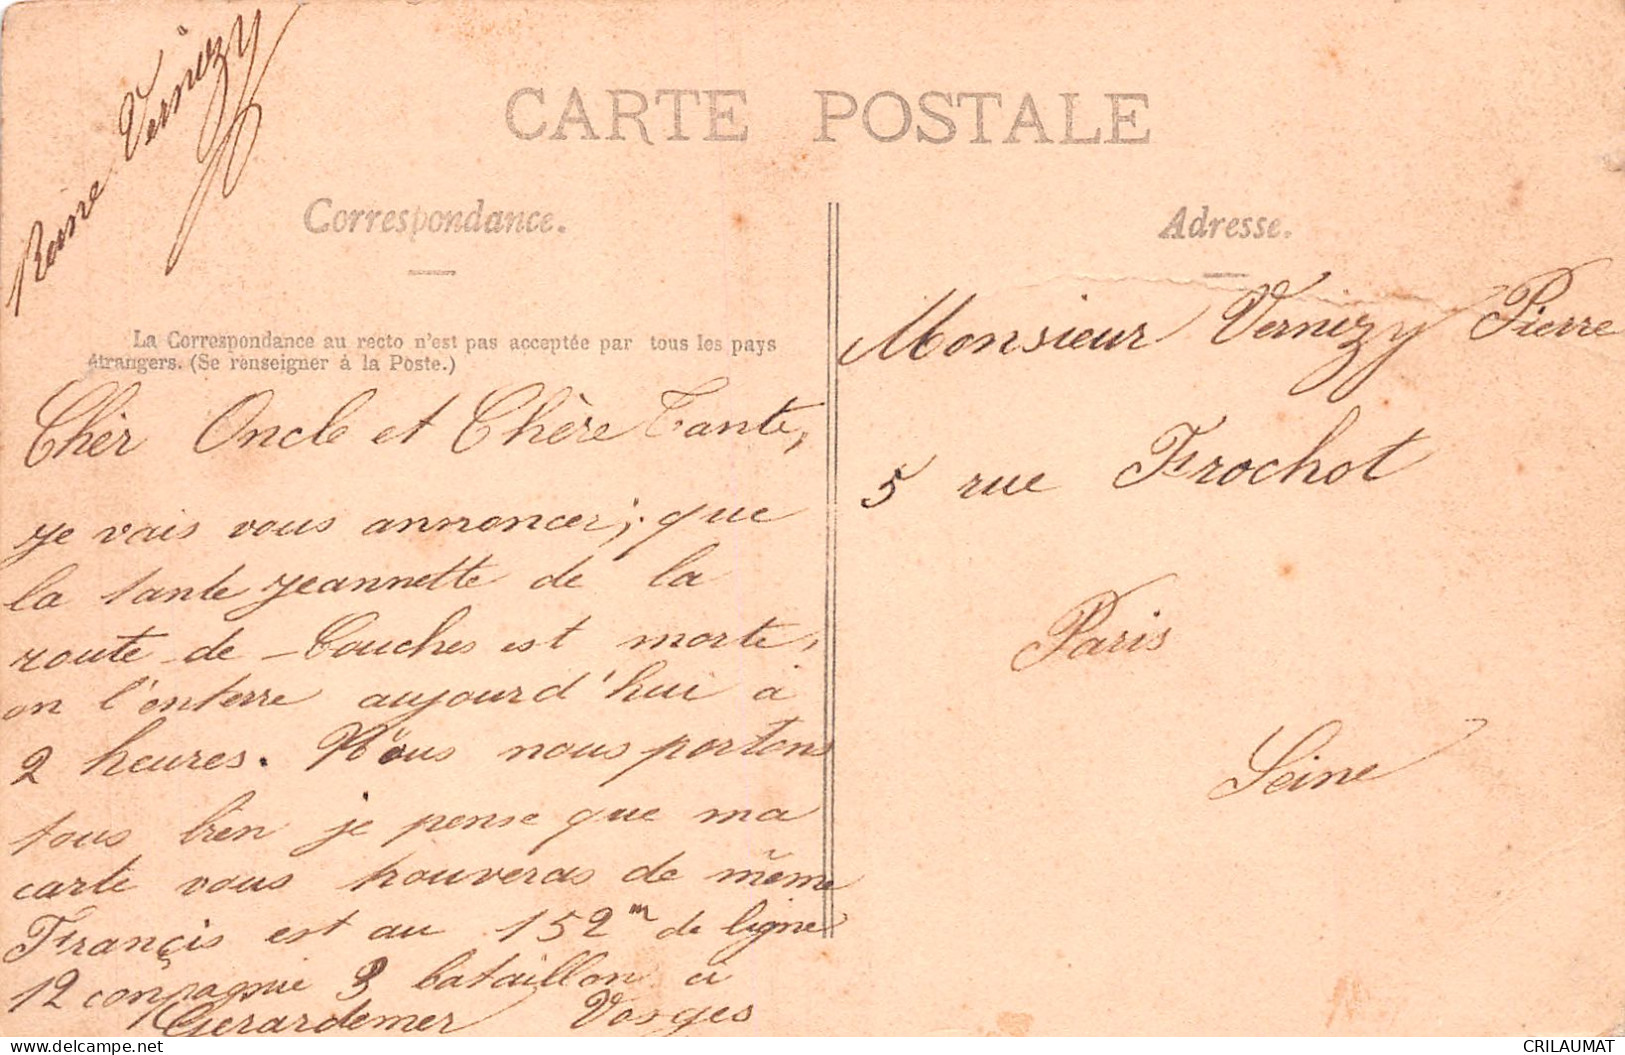 Reine Vernizy
CARTE POSTALE
Correspondance.
Adresse.
La Correspondance au recto n'est pas acceptée par tous les pays
étrangers. (Se renseigner à la Poste.)
Chèr Oncle et Chère Tante,
je vais vous annoncer, que
la tante jeannette de la
route de Couches est morte,
on l'enterre aujourd'hui à
2 heures. Nous nous portons
tous bien je pense que ma
carte vous trouveras de même
Françis est au 152m de ligne
12 conpagnie 3 bataillon à
Gerardemer Vosges
Monsieur Vernizy Pierre
5 rue Frochot
Paris
Seine
www.delcampe.net
CRILAUMAT